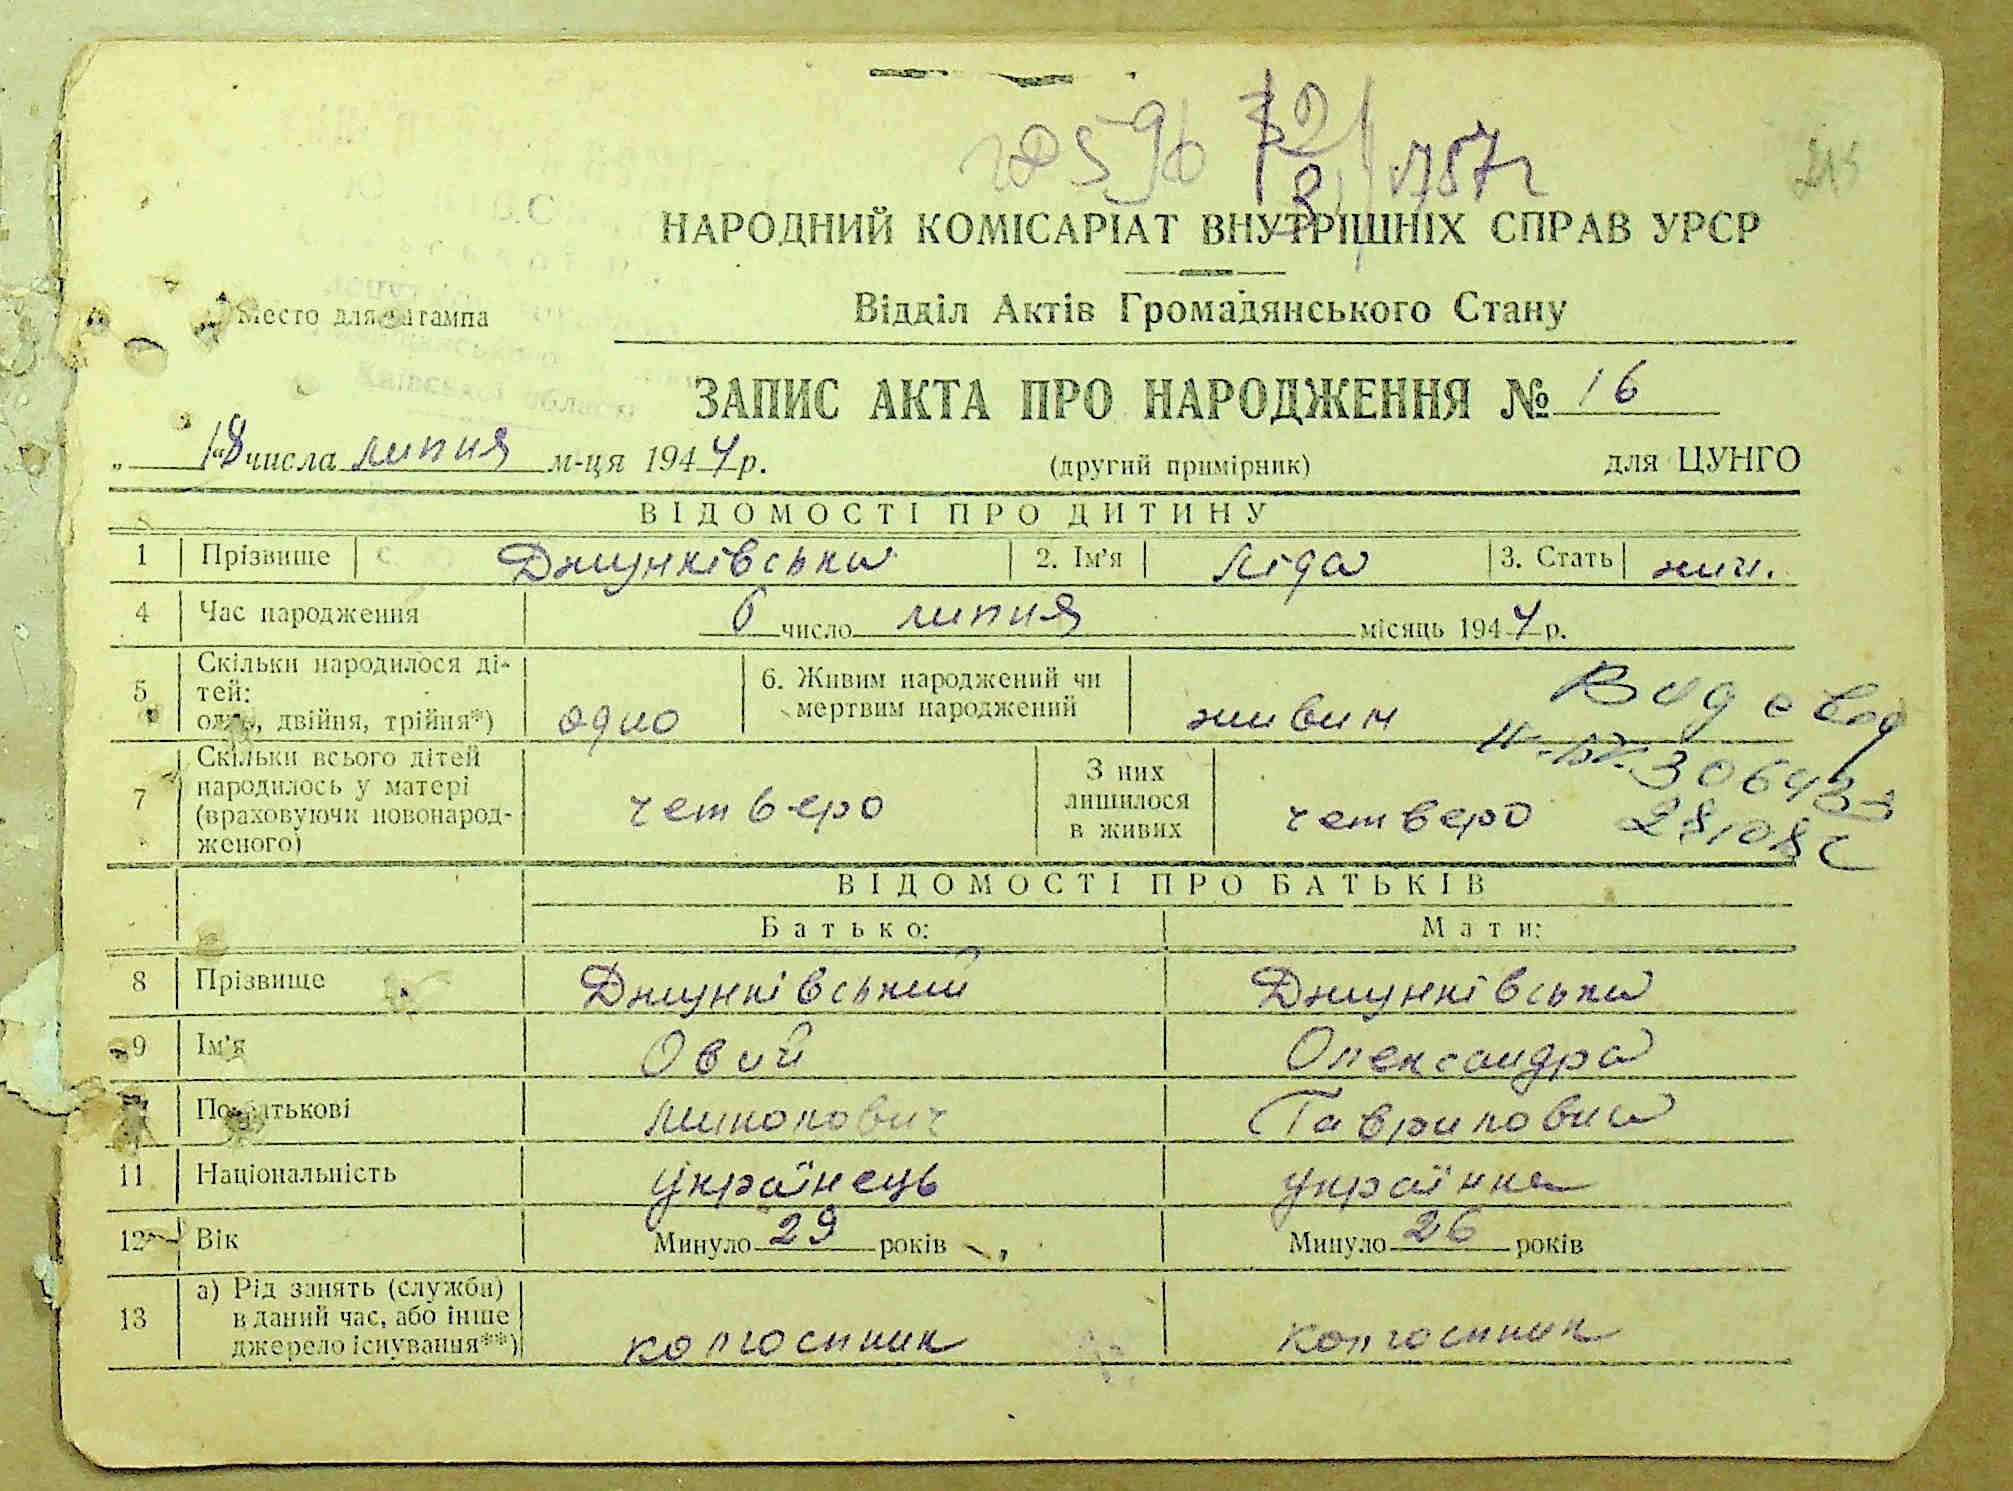 НАРОДНИЙ КОМІСАРІАТ ВНУТРІШНІХ СПРАВ УРСР
Место для штампа
Відділ Актів Громадянського Стану
Київської області
ЗАПИС АКТА ПРО НАРОДЖЕННЯ № 16
„ 18 “ числа липня м-ця 1944 р. (другий примірник) для ЦУНГО
ВІДОМОСТІ ПРО ДИТИНУ
1 Прізвище Джунківська 2. Ім'я Ліда 3. Стать жін.
4 Час народження 6 число липня місяць 1944 р.
5 Скільки народилося дітей: одно, двійня, трійня*) одно 6. Живим народжений чи мертвим народжений живим
7 Скільки всього дітей народилось у матері (враховуючи новонародженого) четверо З них лишилося в живих четверо
ВІДОМОСТІ ПРО БАТЬКІВ
Батько: Мати:
8 Прізвище Джунківський Джунківська
9 Ім'я Овий Олександра
По батькові Гаврилович
11 Національність українець українка
12 Вік Минуло 29 років Минуло 26 років
13 а) Рід занять (служби) в даний час, або інше джерело існування**) колгоспник колгоспник